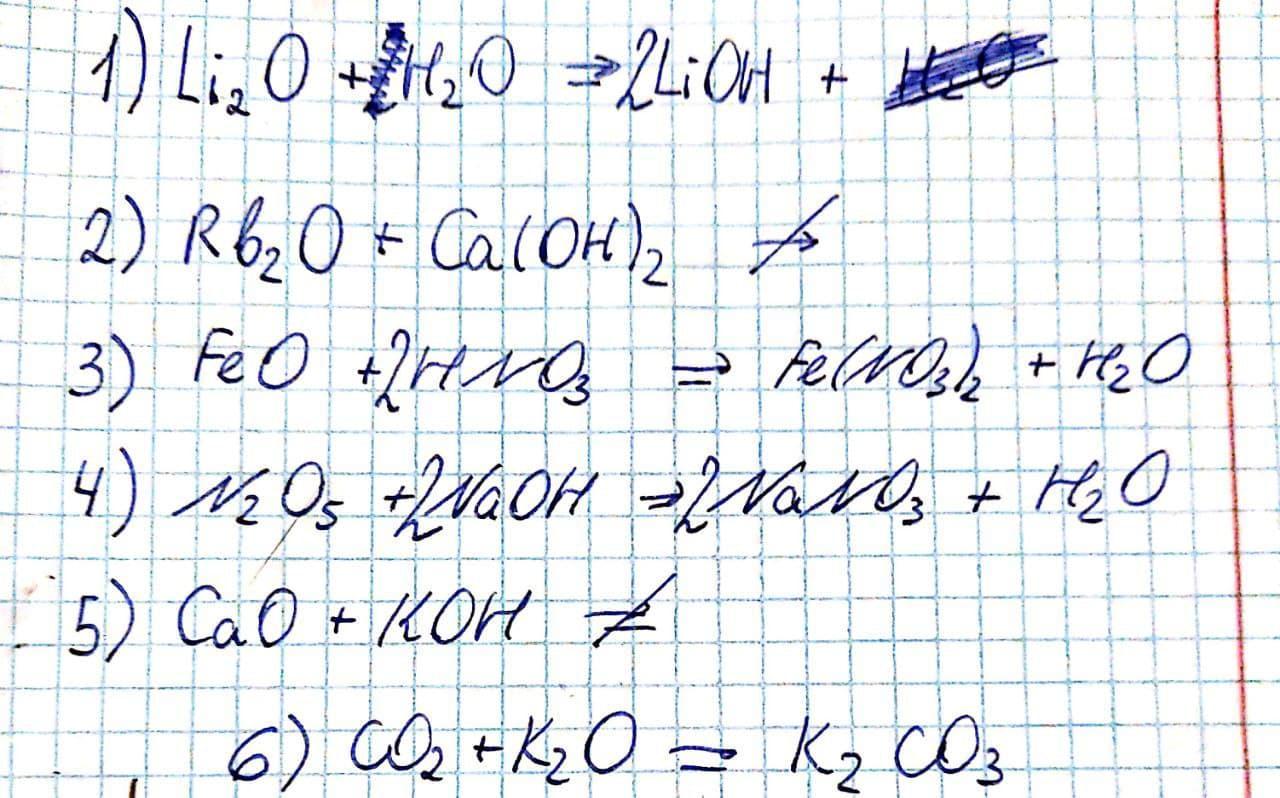 1) Li₂O + H₂O → 2LiOH +
2) Rb₂O + Ca(OH)₂ ↛
3) FeO + 2HNO₃ ⇒ Fe(NO₃)₂ + H₂O
4) N₂O₅ + 2NaOH → 2NaNO₃ + H₂O
5) CaO + KOH ≠
6) CO₂ + K₂O = K₂CO₃